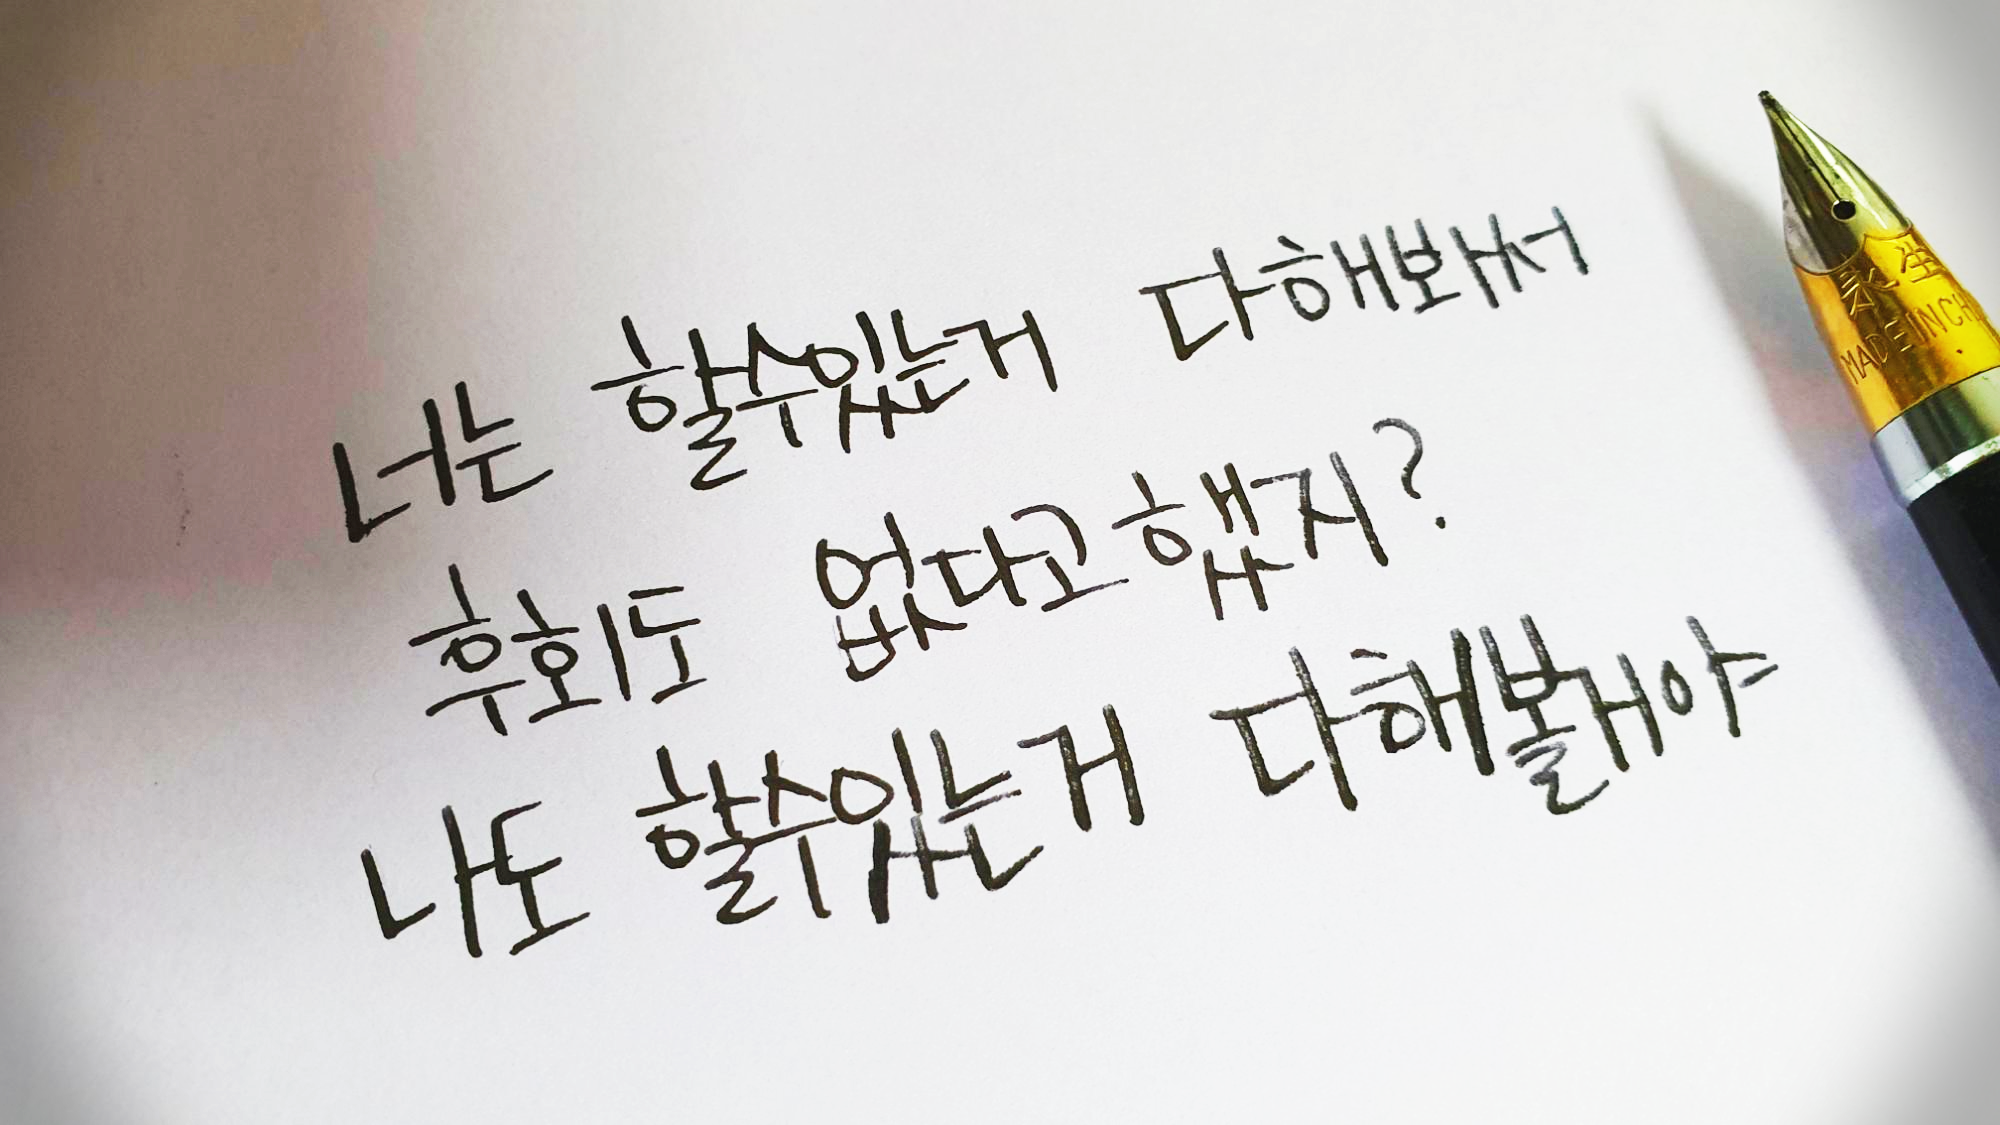 너는 할수있는거 다해봐서
후회도 없다고했지?
나도 할수있는거 다해볼거야
永生
MADE IN CH